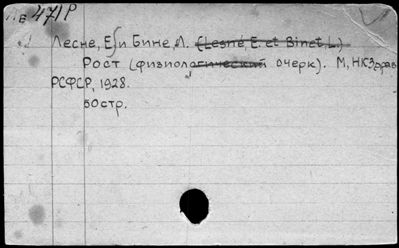 471P
Лесне, Е. и Бине, Л. (Lesné, E. et Binet, L.)
Рост (физиологический очерк). М, НКЗдрав
РСФСР, 1928.
50стр.